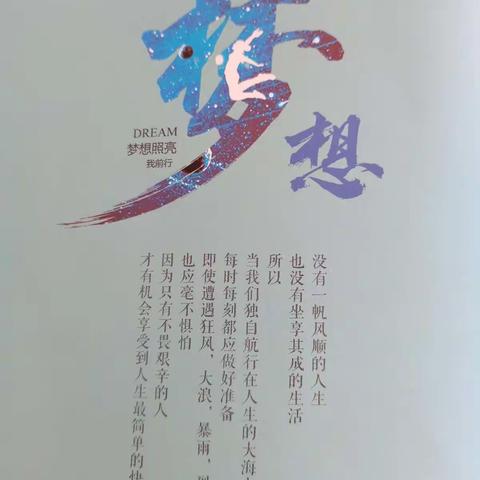 梦想
DREAM
梦想照亮
我前行
没有一帆风顺的人生
也没有坐享其成的生活
所以
当我们独自航行在人生的大海
每时每刻都应做好准备
即使遭遇狂风，大浪，暴雨，
也应毫不惧怕
因为只有不畏艰辛的人
才有机会享受到人生最简单的